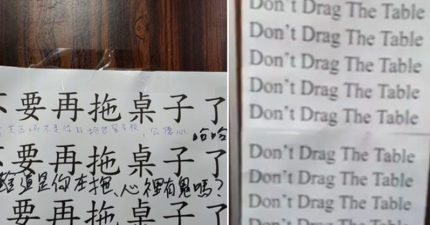 不要再拖桌子了
哈哈
不要再拖桌子了
難道是你在拖、心裡有鬼嗎?
不要再拖桌子了
Don't Drag The Table
Don't Drag The Table
Don't Drag The Table
Don't Drag The Table
Don't Drag The Table
Don't Drag The Table
Don't Drag The Table
Don't Drag The Table
Don't Drag The Table